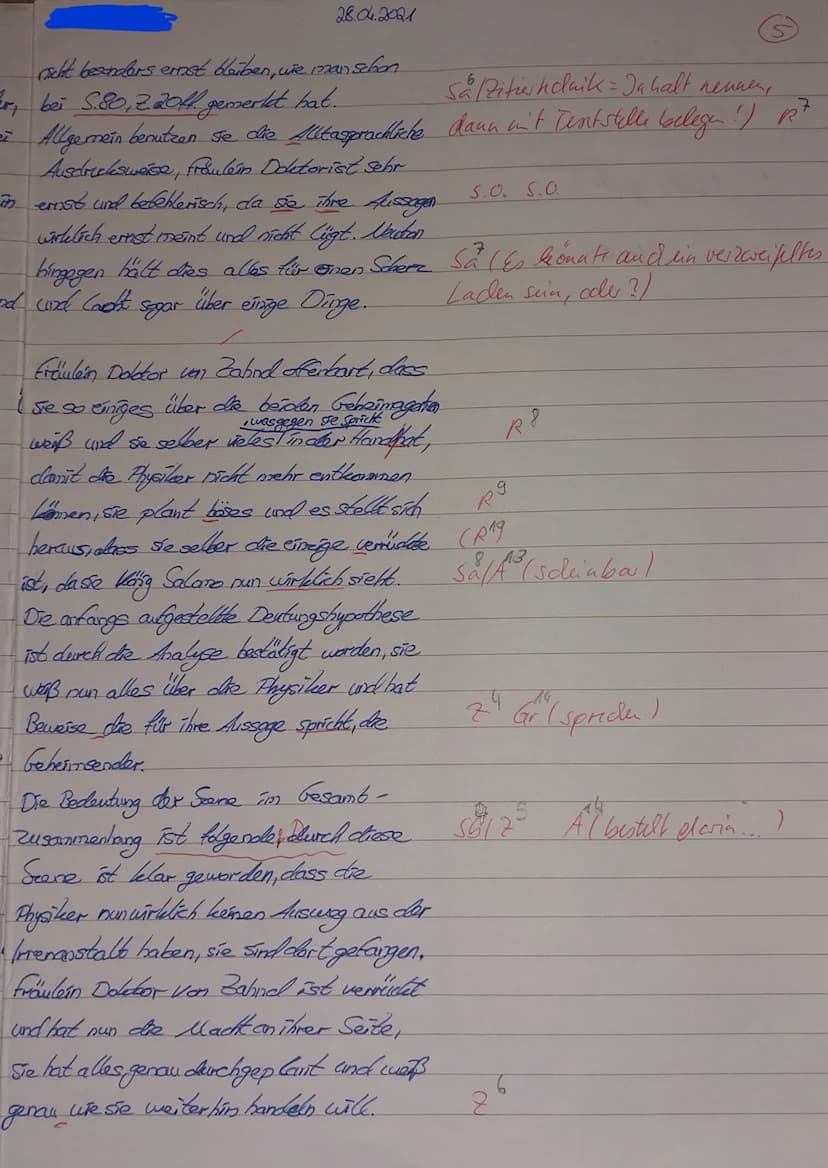 28.04.2021
5
nicht besonders ernst bleiben, wie man schon
bei S.80, Z.20ff. gemerkt hat.
Sa 6 / Zitiertechnik = Inhalt nennen,
dann mit Textstelle belegen!) R 7
Allgemein benutzen sie die Alltasprachliche
Ausdrucksweise, Fräulein Doktor ist sehr
ernst und befehlerisch, da sie ihre Aussagen
s.o. s.o.
wirklich ernst meint und nicht lügt. Newton
hingegen hält dies alles für einen Scherz
Sa 7 (Es könnte auch ein verzweifeltes
und lacht sogar über einige Dinge.
Lachen sein, oder?)
Fräulein Doktor von Zahnd offenbart, dass
sie so einiges über die beiden Geheimagenten
, was gegen sie spricht
weiß und sie selber vieles in der Hand hat,
R 8
damit die Physiker nicht mehr entkommen
können, sie plant böses und es stellt sich
R 9
heraus, dass sie selber die einzige verrückte
(R 19
ist, da sie König Salomo nun wirklich sieht.
Sa 8 / A 13 (scheinbar)
Die anfangs aufgestellte Deutungshypothese
ist durch die Analyse bestätigt worden, sie
weiß nun alles über die Physiker und hat
Beweise die für ihre Aussage spricht, die
Z 4 Gr 14 (sprechen)
Geheimsender.
Die Bedeutung der Szene im Gesamt-
zusammenhang ist folgende, Durch diese
Sb / Z 5 A 14 (besteht darin...)
Szene ist klar geworden, dass die
Physiker nun wirklich keinen Ausweg aus der
Irrenanstalt haben, sie sind dort gefangen.
Fräulein Doktor von Zahnd ist verrückt
und hat nun die Macht an ihrer Seite,
sie hat alles genau durchgeplant und weiß
genau wie sie weiterhin handeln will.
Z 6